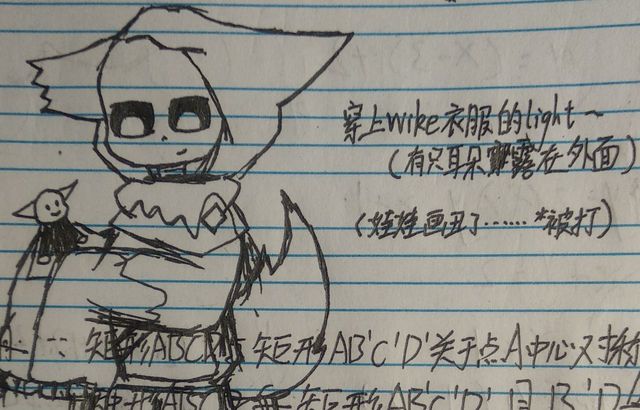 穿上wike衣服的light~
(有只耳朵露在外面)
(娃娃画丑了……*被打)
矩形ABCD与矩形AB'C'D'关于点A中心对称
矩形AB'C'D'